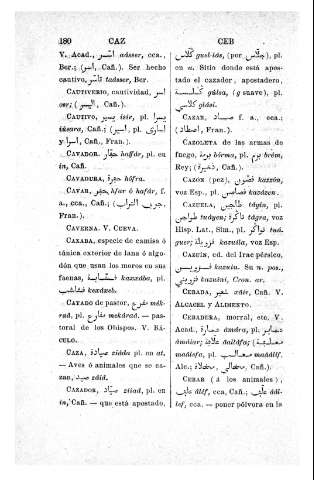 180 CAZ CEB
V. Acad., أسر aásser, cca.,
Ber.; (أسر, Cañ.). Ser hecho
cautivo, تأسر taásser, Ber.
CAUTIVERIO, cautividad, أسر
(اليسر, Cañ.).
CAUTIVO, يسير isir, pl.
Cañ.; (أسير, pl. أسارى
y أسرا, Cañ., Fran.).
CAVADOR, حفار hoffár, pl. en
in, Cañ.
CAVADURA, حفرة hófra.
CAVAR, حفر hfar ó hafár, f.
a., cca., Cañ.; (جرف التراب,
Fran.).
CAVERNA. V. CUEVA.
CAXABA, especie de camisa ó
túnica exterior de lana ó algo-
dón que usan los moros en sus
faenas, kaxxába, pl.
kexáxeb.
CAYADO de pastor,
rád, pl. mekárad. — pas-
toral de los Obispos. V. BÁ-
CULO.
CAZA, صيادة ziáda pl. en at.
— Aves ó animales que se ca-
zan, صيد záid.
CAZADOR, صياد ziiad, pl. en
in, Cañ. — que está apostado.
جلاس gual-lás, (por جلاس), pl.
en in. Sitio donde está apos-
tado el cazador, apostadero,
gúlsa, (g suave), pl.
glási.
CAZAR, صاد f. a., cca.;
(اصطاد, Fran.).
CAZOLETA de las armas de
fuego, برمة bórma, pl. برم brém,
Rey; (ذخيرة, Cañ.).
CAZÓN (pez), kazzón,
voz Esp., pl. kuzázen.
CAZUELA, طاجين táyin, pl.
طواجن tuáyen; تاكرة tágra, voz
Hisp. Lat., Sim., pl.
guer; kazuéla, voz Esp.
CAZUÍN, cd. del Irac pérsico,
kazuín. Su n. pos.,
kazuíni, Cron. ar.
CEBADA, شعير xáir, Cañ. V.
ALCACEL Y ALIMENTO.
CEBADERA, morral, etc. V.
Acad., عمارة ámára, pl. عماير
ámáiar; áalláfa; (معلفة
maálefa, pl. معالف maáálif,
Alc.; مخلاة, مخالي, Cañ.).
CEBAR (á los animales),
علف álef, cca, Cañ.; علف áál-
lef, cca. — poner pólvora en la